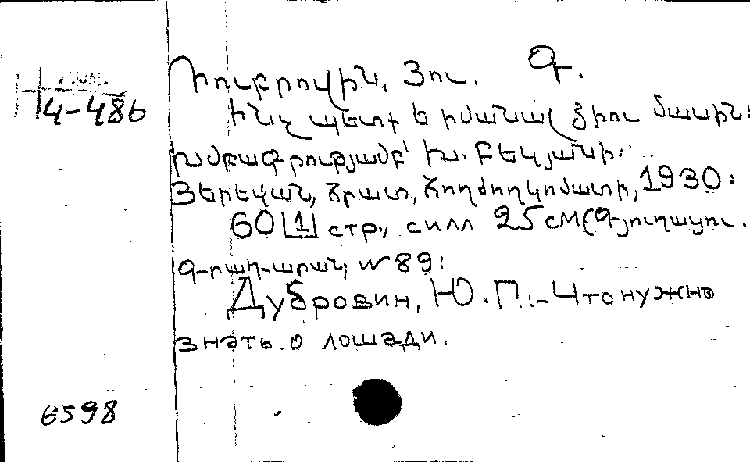 Դուբրովին, Յու. Գ.
4-486
Ինչ պետք է իմանալ ձիու մասին:
Խմբագրությամբ՝ Խ. Բեկյանի:
Յերեվան, Հրատ, Ժողժողկոմատի, 1930:
60 [1] стр., с илл 25 см (Գյուղատնտ.
գրադարան, № 89:
Дубровин, Ю. П. - Что нужно
знать о лошади.
6598